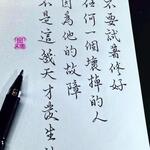 不要試著修好
任何一個壞掉的人
因為他的故障
不是這幾天才發生